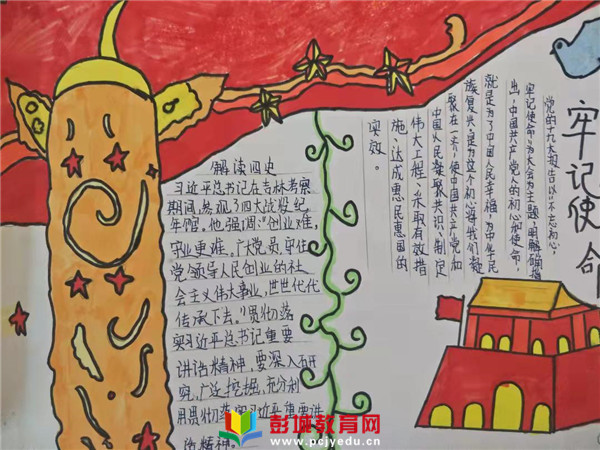 牢记使命
党的十九大报告以“不忘初心,
牢记使命”为大会为主题,明确指
出,中国共产党人的初心和使命,
就是为了中国人民幸福,为中华民
族复兴,是为这个初心将我们凝
聚在一齐,使中国共产党和
中国人民凝聚共识,制定
伟大工程,采取有效措
施,达成惠民惠国的
实效。
解读四史
习近平总书记在吉林考察
期间,参观了四大战役纪
年馆。他强调:“创业难,
守业更难。广大党员守住
党领导人民创业的社
会主义伟大事业,世世代代
传承下去。”贯彻落
实习近平总书记重要
讲话精神,要深入研
究,广泛挖掘,充分利
用贯彻落实习近平重要讲
话精神。
彭城教育网
www.pcjyedu.cn